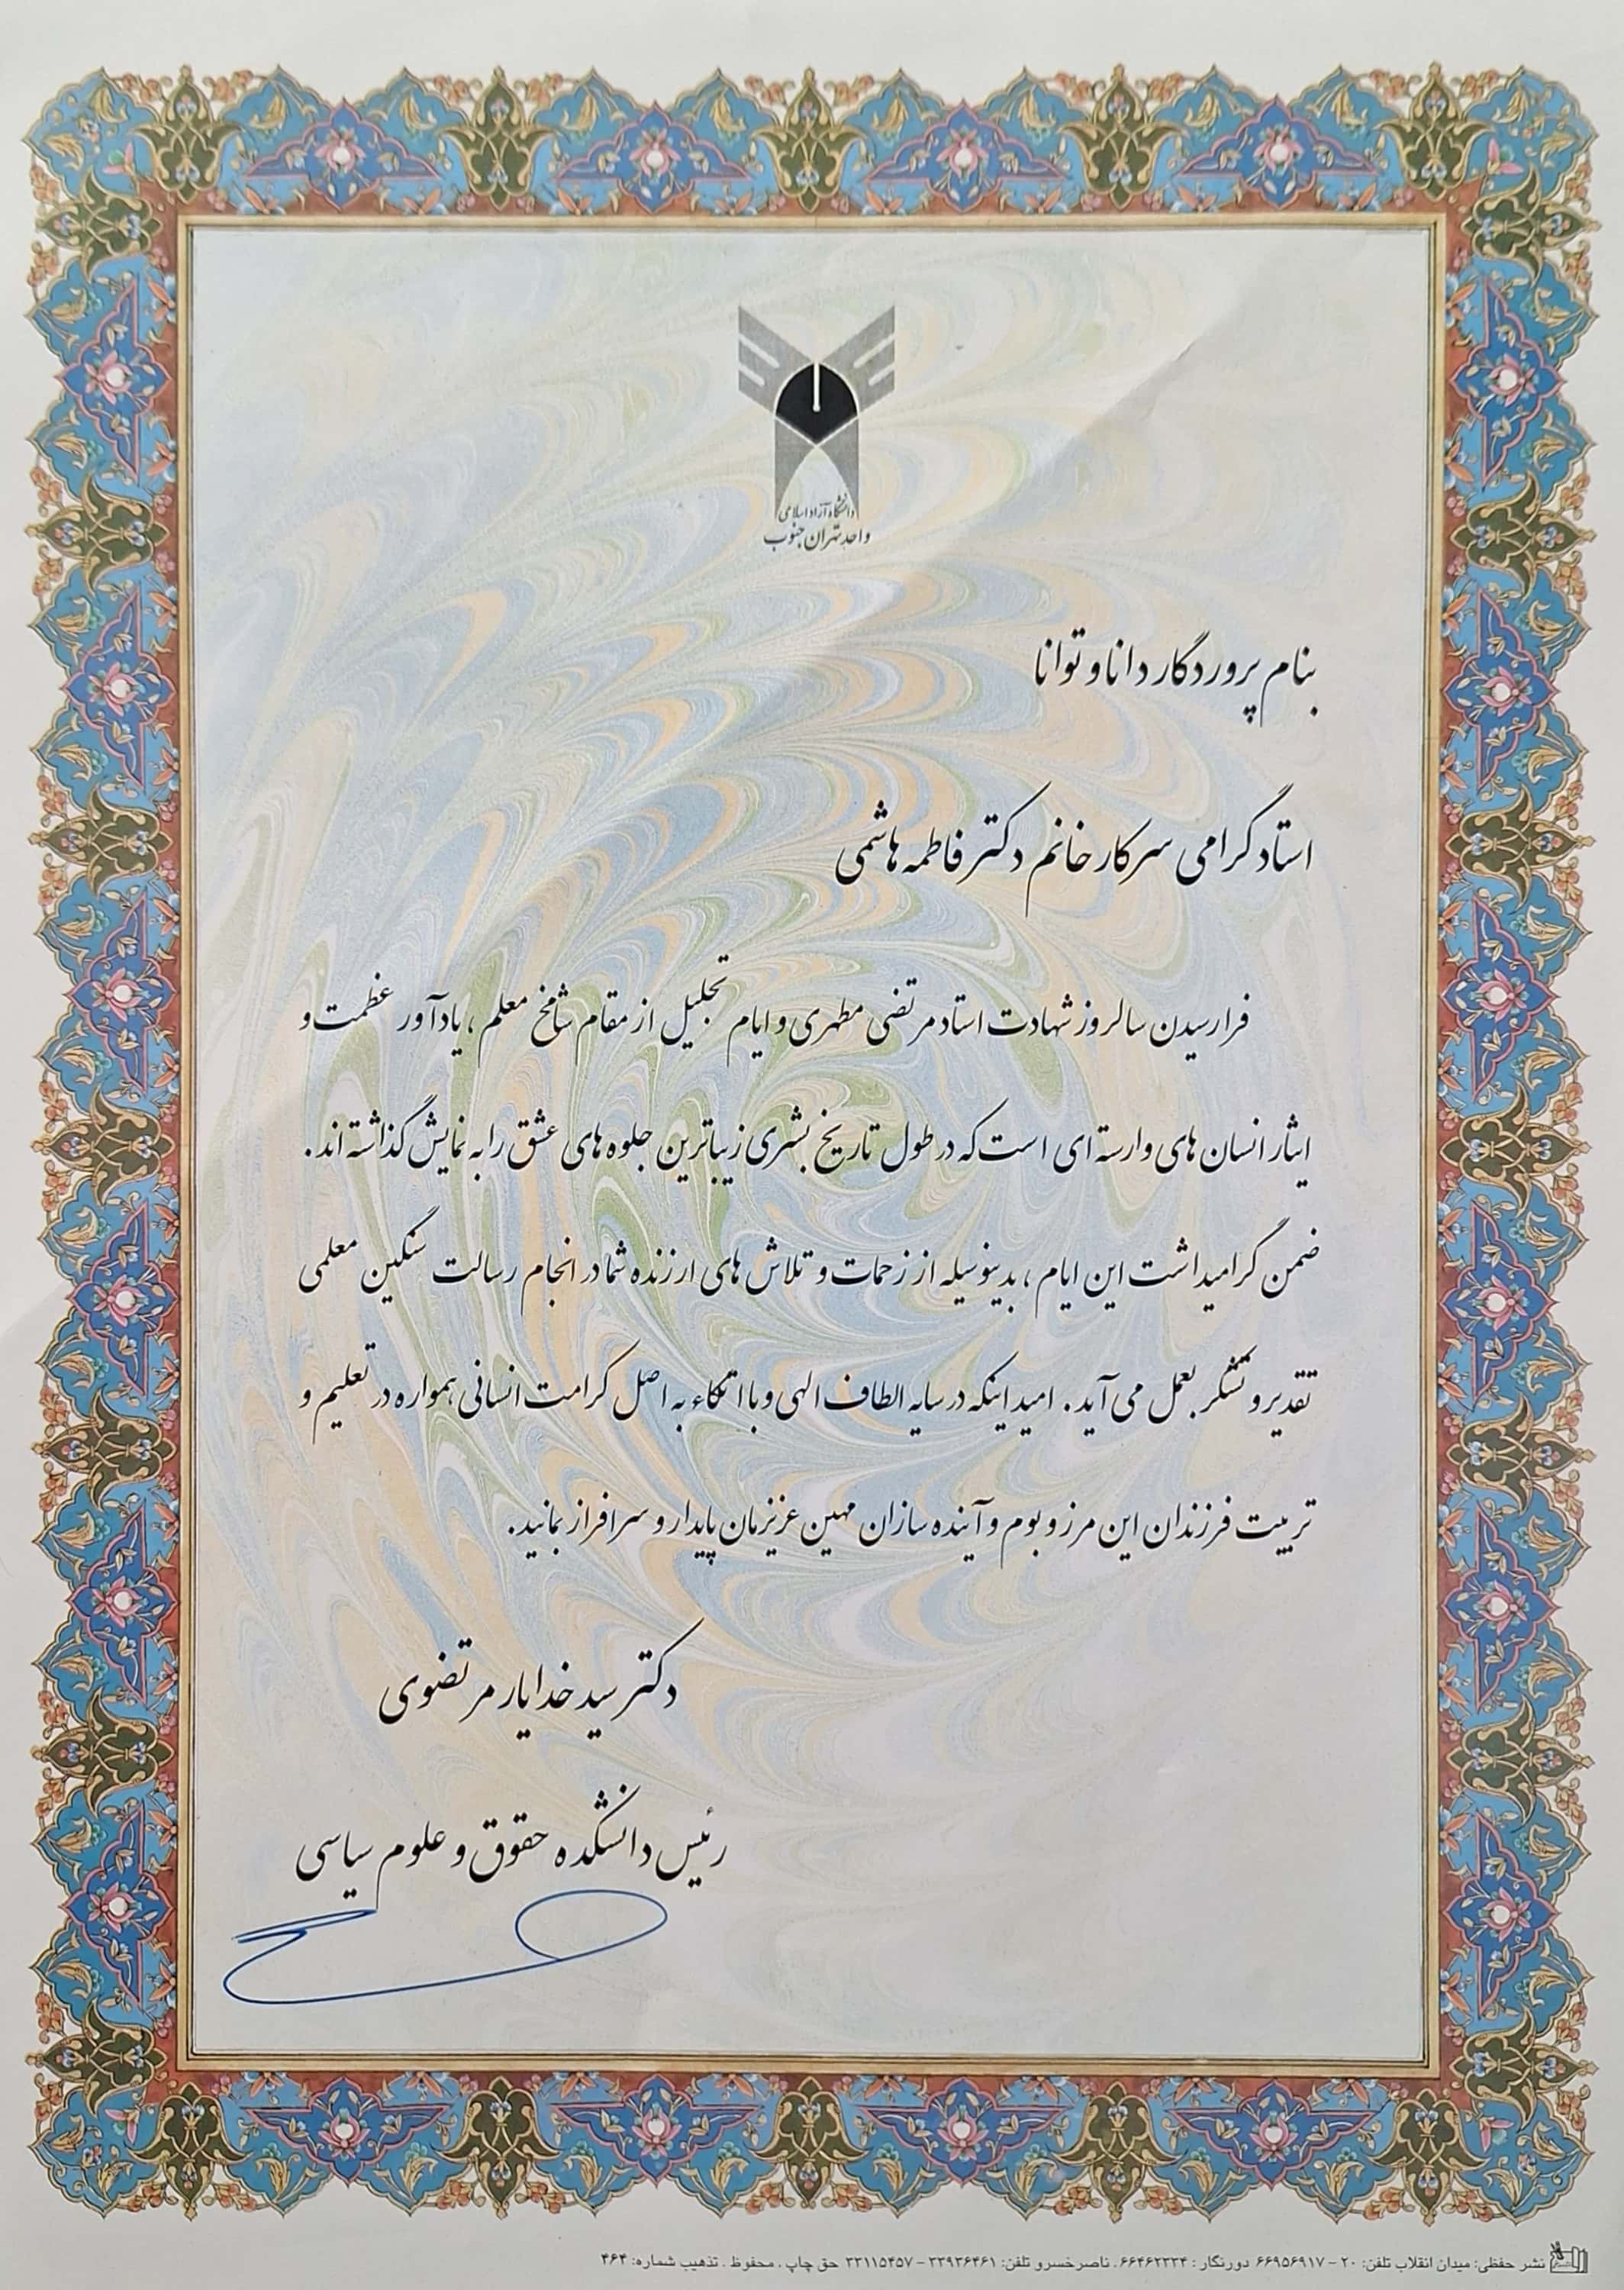 دانشگاه آزاد اسلامی
واحد تهران جنوب
بنام پروردگار دانا و توانا
استاد گرامی سرکار خانم دکتر فاطمه هاشمی
فرا رسیدن سالروز شهادت استاد مرتضی مطهری و ایام تجلیل از مقام شامخ معلم ، یادآور عظمت و
ایثار انسان های وارسته ای است که در طول تاریخ بشری زیباترین جلوه های عشق را به نمایش گذاشته اند .
ضمن گرامیداشت این ایام ، بدینوسیله از زحمات و تلاش های ارزنده شما در انجام رسالت سنگین معلمی
تقدیر و تشکر بعمل می آید . امید اینکه در سایه الطاف الهی و با اتکاء به اصل کرامت انسانی همواره در تعلیم و
تربیت فرزندان این مرز و بوم و آینده سازان میهن عزیزمان پایدار و سرافراز بمانید .
دکتر سید خدایار مرتضوی
رئیس دانشکده حقوق و علوم سیاسی
نشر حفظی: میدان انقلاب تلفن: ۲۰ - ۶۶۹۵۶۹۱۷ دورنگار : ۶۶۴۶۲۳۳۴ ، ناصرخسرو تلفن: ۳۳۹۳۶۴۶۱ - ۳۳۱۱۵۴۵۷ حق چاپ ، محفوظ . تذهیب شماره: ۴۶۴